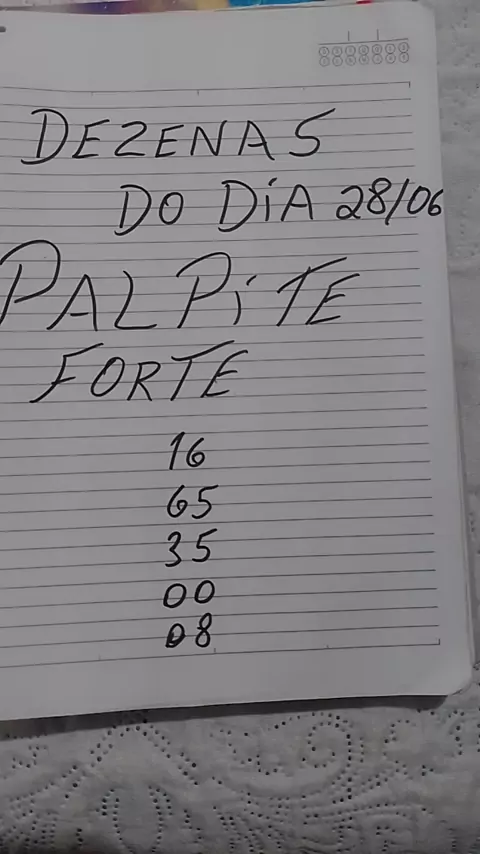 DEZENAS
DO DiA 28/06
PALPiTE
FORTE
16
65
35
00
08